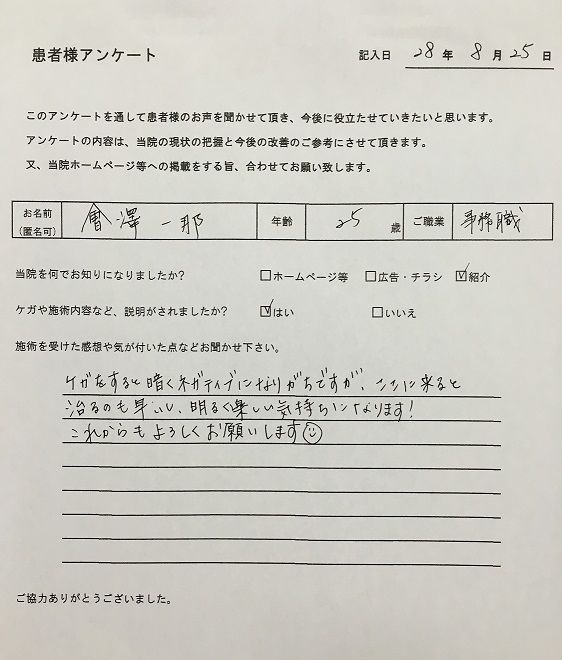 患者様アンケート
記入日 28年 8月 25日
このアンケートを通して患者様のお声を聞かせて頂き、今後に役立たせていきたいと思います。
アンケートの内容は、当院の現状の把握と今後の改善のご参考にさせて頂きます。
又、当院ホームページ等への掲載をする旨、合わせてお願い致します。
お名前(匿名可) 會澤一那 年齢 25歳 ご職業 事務職
当院を何でお知りになりましたか? □ホームページ等 □広告・チラシ ☑紹介
ケガや施術内容など、説明がされましたか? ☑はい □いいえ
施術を受けた感想や気が付いた点などお聞かせ下さい。
ケガをすると暗くネガティブになりがちですが、ここに来ると
治るのも早いし、明るく楽しい気持ちになります!
これからもよろしくお願いします☺
ご協力ありがとうございました。